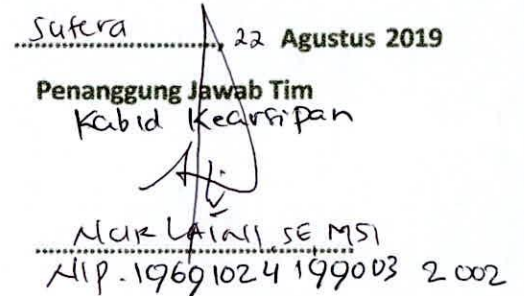 Sutera, 22 Agustus 2019
Penanggung Jawab Tim
Kabid Kearsipan
NURLAINI, SE MSI
NIP. 19691024 199003 2 002